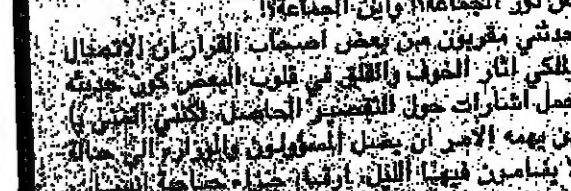 عن دور الجماعة!! وأين الجماعة؟!
حدثني مقربون من بعض أصحاب القرار أن الاتصال
الملكي أثار الخوف والقلق في قلوب البعض كون حديثه
حمل اشارات حول التقصير الحاصل، لكنني أتمنى
يهمه الأمر أن يصل المسؤولون والوزراء الى حالة
لا ينامون فيها الليل، ارقبة، جراء